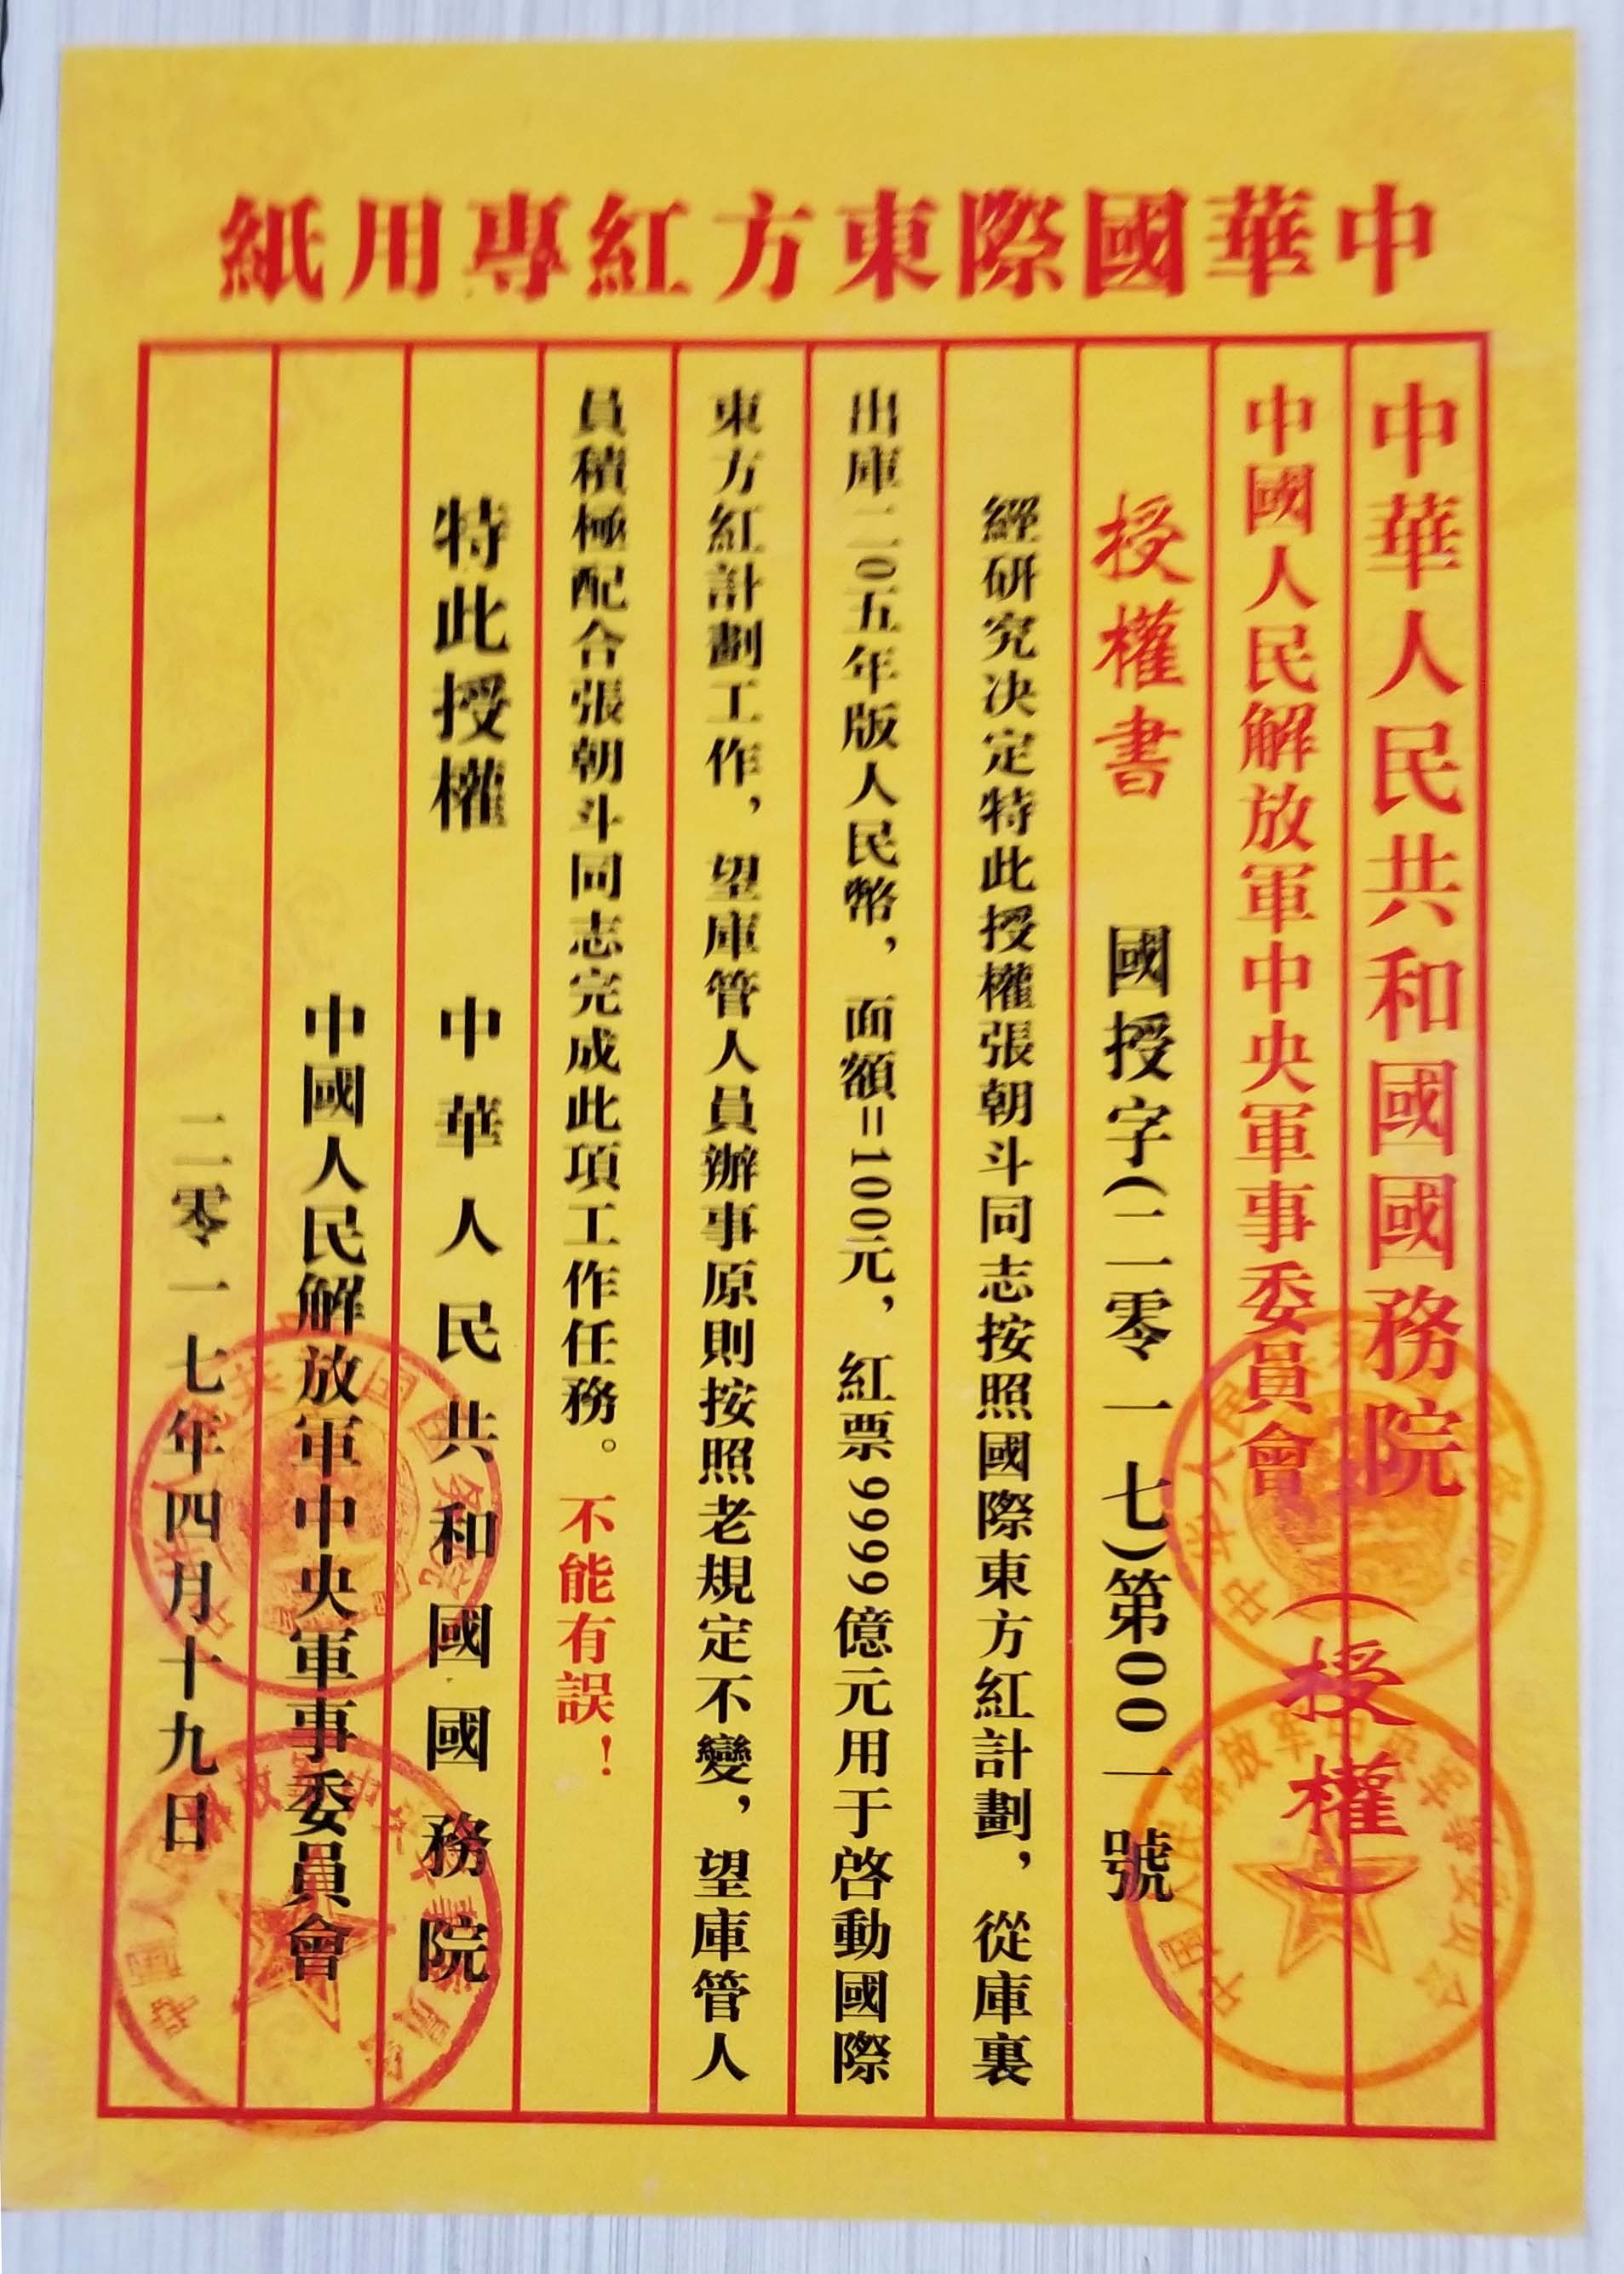 中華國際東方紅專用紙
中華人民共和國國務院
中國人民解放軍中央軍事委員會
（授權）
授權書 國授字(二零一七)第00一號
經研究决定特此授權張朝斗同志按照國際東方紅計劃，從庫裏
出庫二0五年版人民幣，面額=100元，紅票9999億元用于啓動國際
東方紅計劃工作，望庫管人員辦事原則按照老規定不變，望庫管人
員積極配合張朝斗同志完成此項工作任務。不能有誤！
特此授權 中華人民共和國國務院
中國人民解放軍中央軍事委員會
二零一七年四月十九日